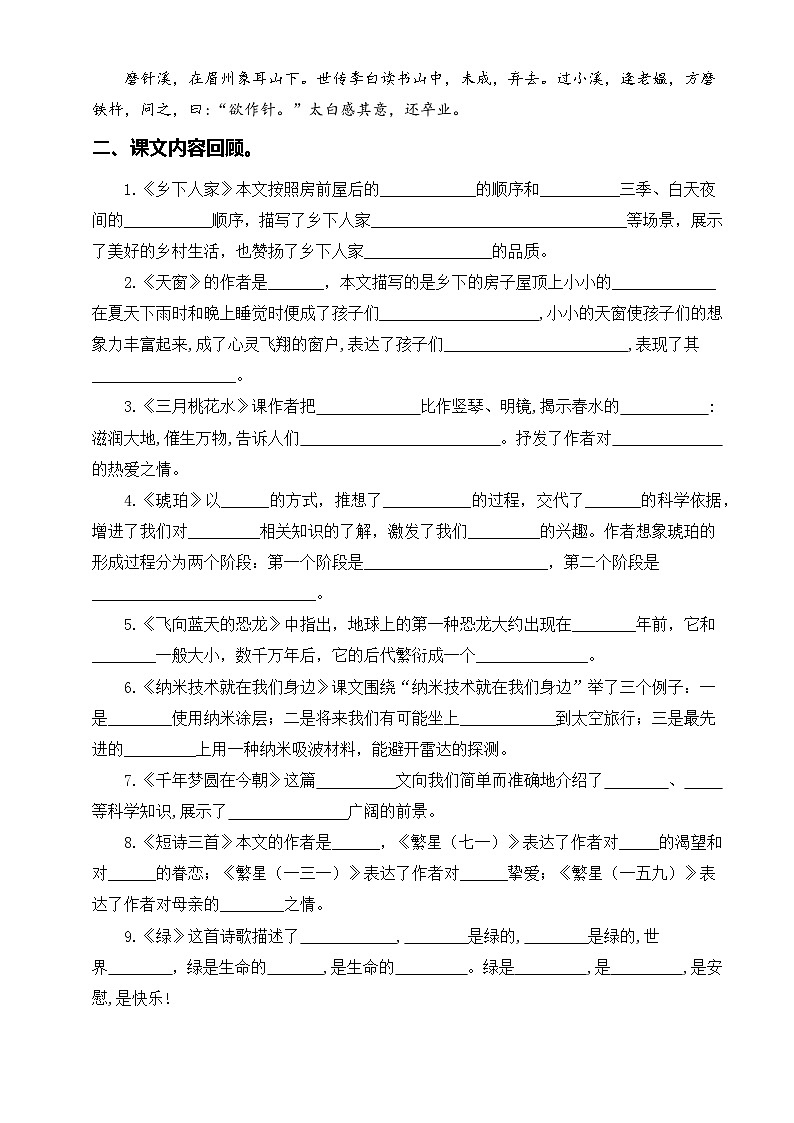 磨针溪，在眉州象耳山下。世传李白读书山中，未成，弃去。过小溪，逢老媪，方磨
铁杵，问之，曰：“欲作针。”太白感其意，还卒业。
二、课文内容回顾。
1.《乡下人家》本文按照房前屋后的____________的顺序和__________三季、白天夜
间的___________顺序，描写了乡下人家________________________________等场景，展示
了美好的乡村生活，也赞扬了乡下人家________________的品质。
2.《天窗》的作者是_______，本文描写的是乡下的房子屋顶上小小的_____________
在夏天下雨时和晚上睡觉时便成了孩子们____________________,小小的天窗使孩子们的想
象力丰富起来,成了心灵飞翔的窗户,表达了孩子们_______________________,表现了其
__________________。
3.《三月桃花水》课作者把_____________比作竖琴、明镜,揭示春水的___________:
滋润大地,催生万物,告诉人们_________________________。抒发了作者对______________
的热爱之情。
4.《琥珀》以______的方式，推想了___________的过程，交代了_______的科学依据，
增进了我们对_________相关知识的了解，激发了我们_________的兴趣。作者想象琥珀的
形成过程分为两个阶段：第一个阶段是_______________________，第二个阶段是
____________________________。
5.《飞向蓝天的恐龙》中指出，地球上的第一种恐龙大约出现在________年前，它和
________一般大小，数千万年后，它的后代繁衍成一个______________。
6.《纳米技术就在我们身边》课文围绕“纳米技术就在我们身边”举了三个例子：一
是________使用纳米涂层；二是将来我们有可能坐上____________到太空旅行；三是最先
进的_________上用一种纳米吸波材料，能避开雷达的探测。
7.《千年梦圆在今朝》这篇__________文向我们简单而准确地介绍了________、_____
等科学知识,展示了_______________广阔的前景。
8.《短诗三首》本文的作者是______，《繁星（七一）》表达了作者对_____的渴望和
对______的眷恋；《繁星（一三一）》表达了作者对______挚爱；《繁星（一五九）》表
达了作者对母亲的________之情。
9.《绿》这首诗歌描述了____________,________是绿的,________是绿的,世
界________，绿是生命的_______,是生命的_________。绿是_________,是_________,是安
慰,是快乐!